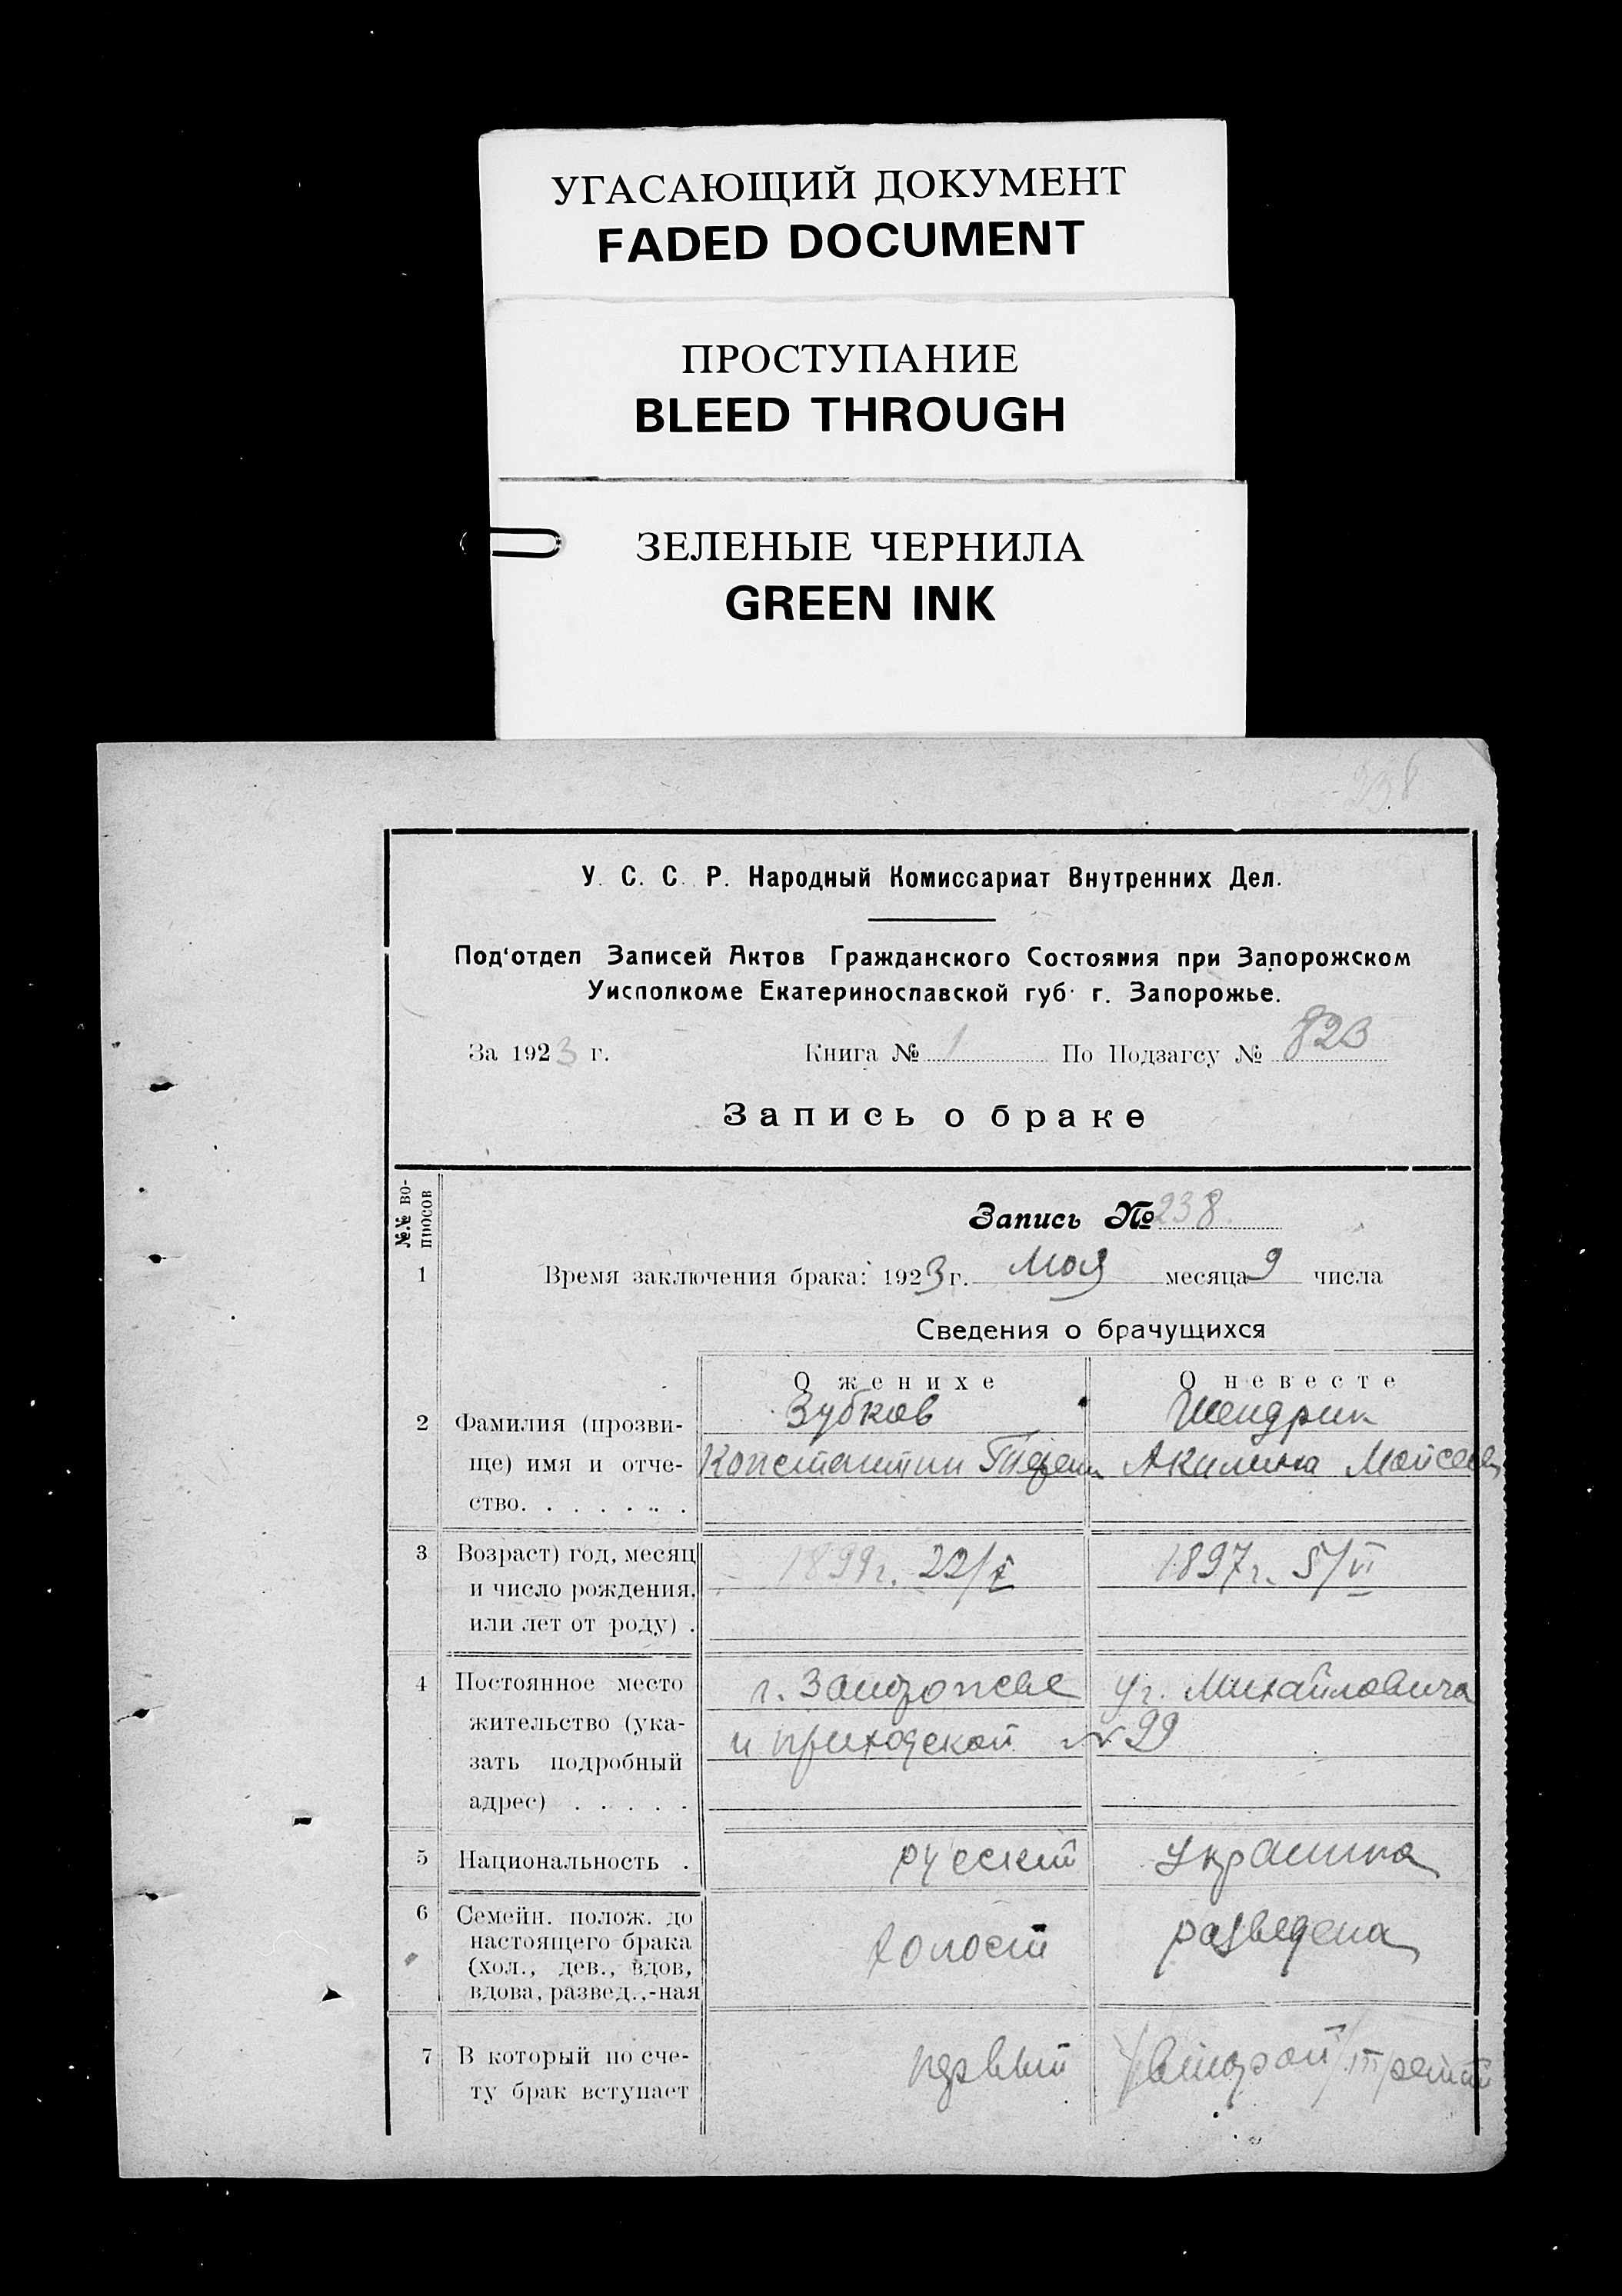 УГАСАЮЩИЙ ДОКУМЕНТ
FADED DOCUMENT
ПРОСТУПАНИЕ
BLEED THROUGH
ЗЕЛЕНЫЕ ЧЕРНИЛА
GREEN INK
238
У. С. С. Р. Народный Комиссариат Внутренних Дел.
Под'отдел Записей Актов Гражданского Состояния при Запорожском
Уисполкоме Екатеринославской губ. г. Запорожье.
За 1923 г. Книга № 1 По Подзагсу № 823
Запись о браке
№.№ во-
просов
Запись № 238
1 Время заключения брака: 1923 г. Мая месяца 9 числа
Сведения о брачущихся
О женихе О невесте
2 Фамилия (прозви- Зубков Шендрик
ще) имя и отче- Константин Акилина Мойсеев
ство. . . . . . .
3 Возраст) год, месяц 1899 г. 22/X 1897 г. 5/VI
и число рождения.
или лет от роду) .
4 Постоянное место г. Запорожье уг. Михайловича
жительство (ука- и приходской № 99
зать подробный
адрес) . . . . .
5 Национальность . русский украинка
6 Семейн. полож. до холост разведена
настоящего брака
(хол., дев., вдов,
вдова, развед.,-ная
7 В который по сче- первый /второй/ третий
ту брак вступает